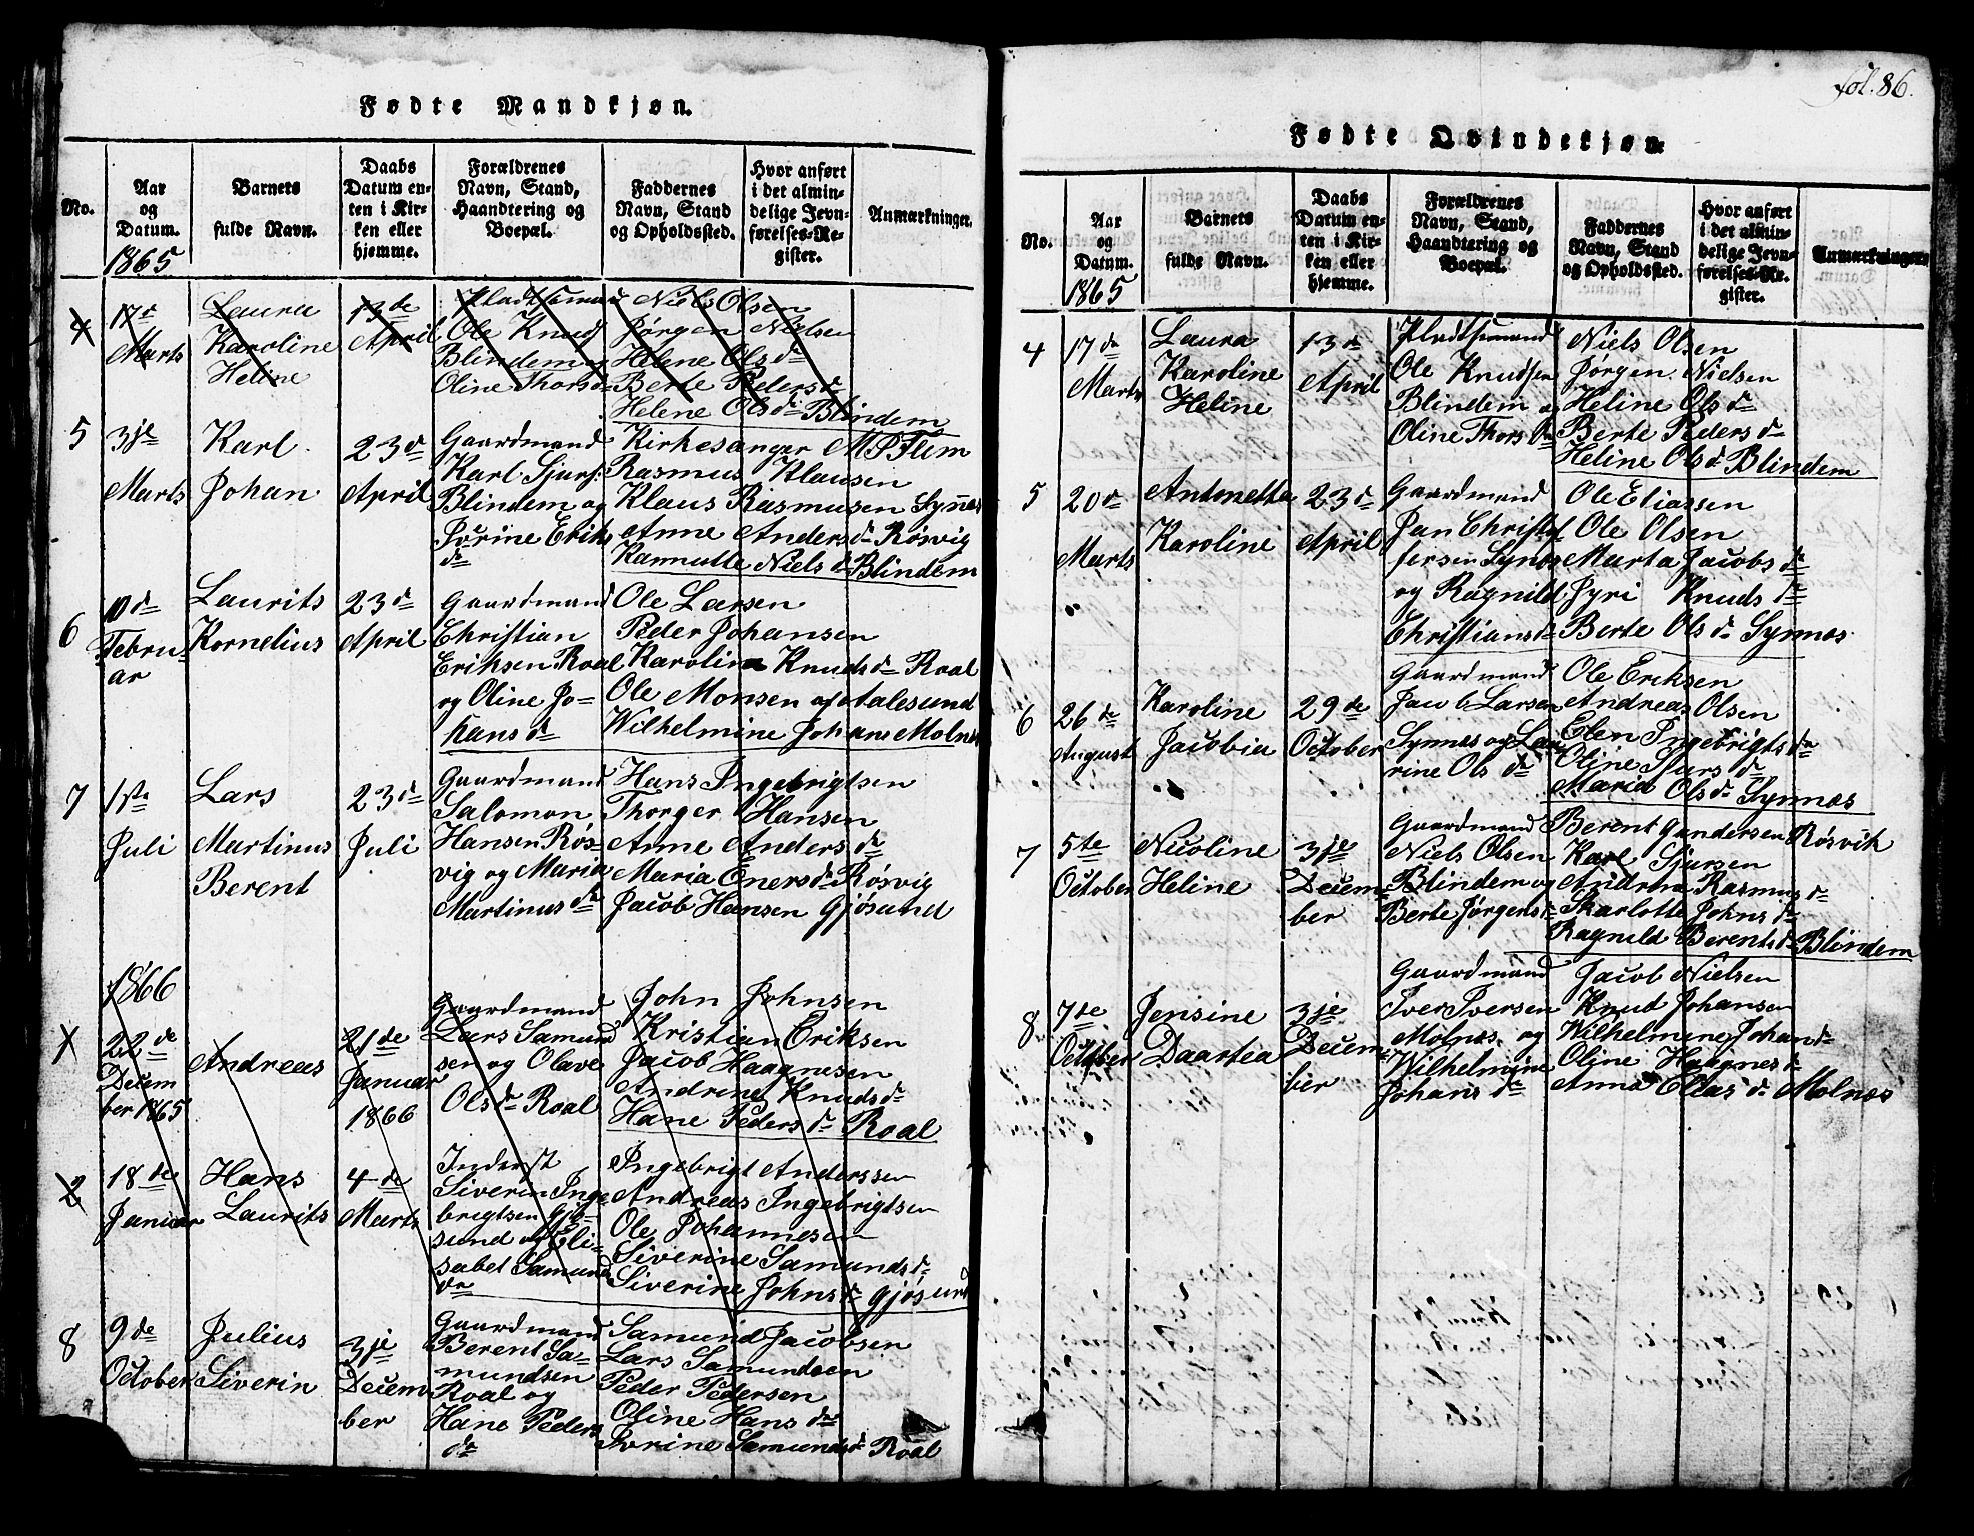 Fødte Mandkjøn.
No.
Aar
og
Datum.
1865
Barnets
fulde Navn.
Daabs
Datum en-
ten i Kir-
ken eller
hjemme.
Forældrenes
Navn, Stand,
Haandtering og
Boepæl.
Faddernes
Navn, Stand
og Opholdssted.
Hvor anført
i det almin-
delige Jevn-
førelses-Re-
gister.
Anmærkninger.
4
17de
Marts
Laura
Karoline
Heline
13de
April
Pladsmand
Ole Knuds
Blindem og
Oline Thorsd
Niels Olsen
Jørgen Nielsen
Helene Olsdr
Berte Pedersdr
Helene Olsdr Blindem
5
3je
Marts
Karl
Johan
23de
April
Gaardmand
Karl Sjurs:
Blindem og
Jørine Eriks
dr
Kirkesanger M P Flem
Rasmus Klausen
Klaus Rasmusen Synes
Anne Andersdr Røsvig
Kannutte Nielsdr Blindem
6
10de
Febru-
ar
Laurits
Kornelius
23de
April
Gaardmand
Christian
Eriksen Roal
og Oline Jo-
hansdr
Ole Larsen
Peder Johansen
Karoline Knudsdr Roal
Ole Monsen af Aalesund
Wilhelmine Johans Molnes
7
1ste
Juli
Lars
Martinus
Berent
23de
Juli
Gaardmand
Salomon
Hansen Røs-
vig og Maria
Martinusdr
Hans Ingebrigtsen
Thorger Hansen
Anne Andersdr
Maria Enersdr Røsvig
Jacob Hansen Gjøsund
1866
1
22de
Decem
ber 1865
Andreas
21de
Januar
1866
Gaardmand
Lars Samund
sen og Olave
Olsdr Roal
John Johnsen
Kristian Eriksen
Jacob Haagnesen
Andrine Knudsdr
Hane Pedersdr Roal
2
18de
Januar
Hans
Laurits
4de
Marts
Inderst
Siverin Inge
brigtsen Gjø-
sund og Eli-
sabet Samund
dr
Ingebrigt Anderssen
Andreas Ingebrigtsen
Ole Johannesen
Siverine Samundsdr
Siverine Johnsdr Gjøsund
8
9de
October
Julius
Siverin
3je
Decem
ber
Gaardmand
Berent Sa-
mundsen
Roal og
Hane Peders
dr
Samund Jacobsen
Lars Samundsen
Peder Pedersen
Oline Hansdr
Ivrine Samundsdr Roal
fol. 86.
Fødte Qvindekjøn.
No.
Aar
og
Datum.
1865
Barnets
fulde Navn.
Daabs
Datum en-
ten i Kir-
ken eller
hjemme.
Forældrenes
Navn, Stand,
Haandtering og
Boepæl.
Faddernes
Navn, Stand
og Opholdssted.
Hvor anført
i det almin-
delige Jevn-
førelses-Re-
gister.
Anmærkninger.
4
17de
Marts
Laura
Karoline
Heline
13de
April
Pladsmand
Ole Knudsen
Blindem og
Oline Thorsdr
Niels Olsen
Jørgen Nielsen
Heline Olsdr
Berte Pedersdr
Heline Olsdr Blindem
5
20de
Marts
Antonette
Karoline
23de
April
Gaardmand
Jan Christof
fersen Synes
og Ragnild
Christiansdr
Ole Eliassen
Ole Olsen
Marta Jacobsdr
Jyri Knudsdr
Berte Olsdr Synnes
6
26de
August
Karoline
Jacobia
29de
October
Gaardmand
Jacob Larsen
Synnes og Lau
rine Olsdr
Ole Eriksen
Andreas Olsen
Elen Ingebrigtsdr
Oline Sjursdr
Maria Olsdr Synnes
7
5te
October
Nicoline
Heline
3je
Decem-
ber
Gaardmand
Niels Olsen
Blindem og
Berte Jørgensdr
Berent Gundersen Røsvik
Karl Sjursen
Andrea Rasmusdr
Skarlotte Johnsdr
Ragnild Berentsdr Blindem
8
7de
October
Jensine
Daartea
3je
Decem-
ber
Gaardmand
Iver Iversen
Molnes og
Wilhelmine
Johansdr
Jacob Nielsen
Knud Johansen
Wilhelmine Johandr
Oline Haagnesdr
Anna Eliasdr Molnes